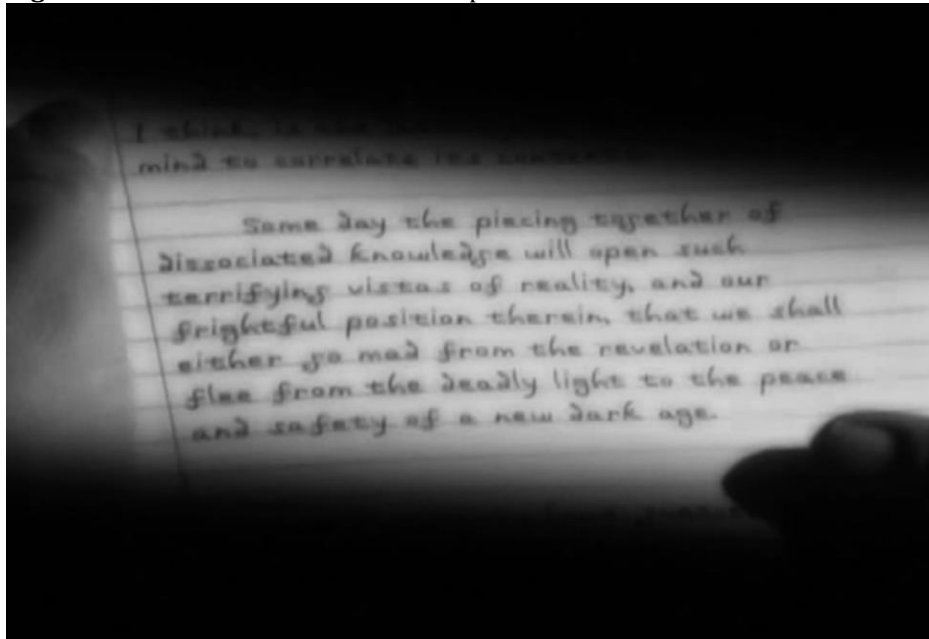 I think, is
mind to correlate its
Some day the piecing together of
dissociated knowledge will open such
terrifying vistas of reality, and our
frightful position therein, that we shall
either go mad from the revelation or
flee from the deadly light to the peace
and safety of a new dark age.